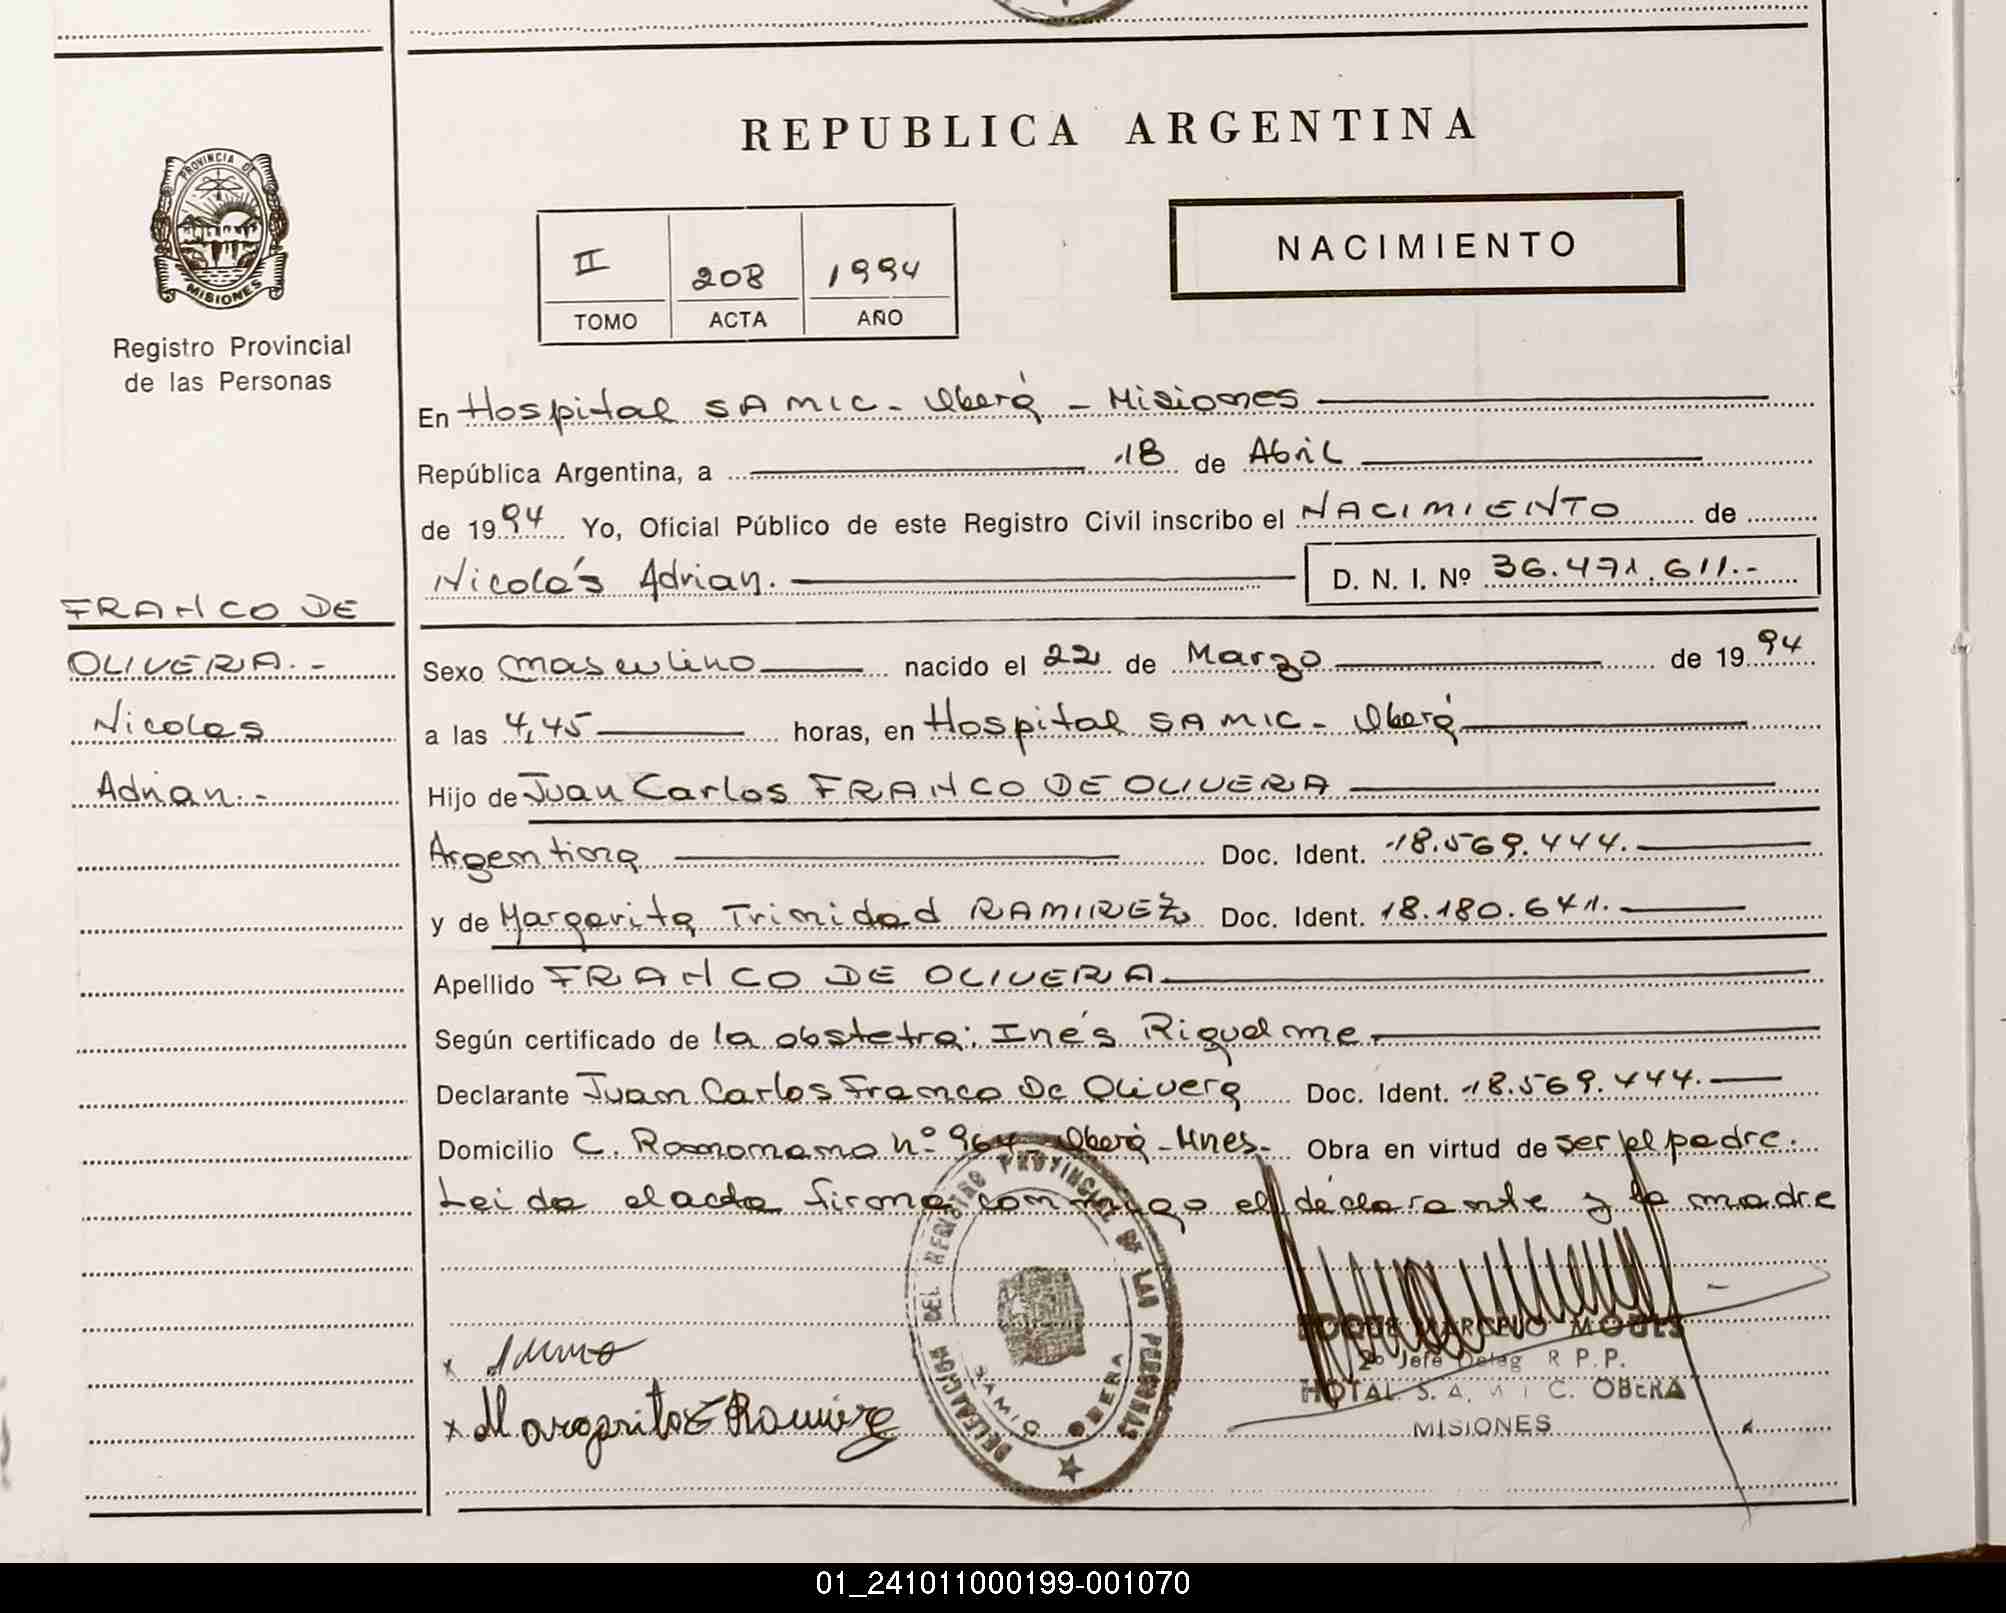 REPUBLICA ARGENTINA
PROVINCIA DE
MISIONES
Registro Provincial
de las Personas
II 208 1994
TOMO ACTA AÑO
NACIMIENTO
En Hospital SAMIC - Oberá - Misiones
República Argentina, a 18 de Abril
de 1994 Yo, Oficial Público de este Registro Civil inscribo el NACIMIENTO de
Nicolás Adrian. D. N. I. Nº 36.471.611.-
FRANCO DE
OLIVERA.-
Nicolas
Adrian.-
Sexo masculino nacido el 22 de Marzo de 1994
a las 4,45 horas, en Hospital SAMIC - Oberá
Hijo de Juan Carlos FRANCO DE OLIVERA
Argentina Doc. Ident. 18.569.444.
y de Margarita Trinidad RAMIREZ Doc. Ident. 18.180.641.
Apellido FRANCO DE OLIVERA
Según certificado de la obstetra: Inés Riquelme
Declarante Juan Carlos Franco De Olivera Doc. Ident. 18.569.444.
Domicilio C. Romomamo nº 964 - Oberá - Mnes. - Obra en virtud de ser el padre.
Leida el acta firma conmigo el declarante y la madre
DELEGACION DEL REGISTRO PROVINCIAL DE LAS PERSONAS
SAMIC OBERA
ROQUE MARCELO
2º Jefe Deleg R P.P.
HOTAL S. A. M I C. OBERA
MISIONES
x
x Margarita T Ramirez
01_241011000199-001070